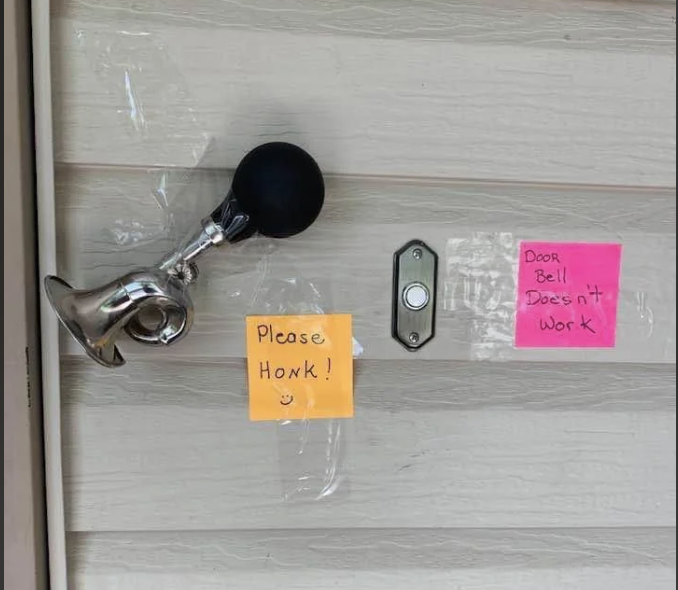 Please
Honk!
Door
Bell
Doesn't
Work